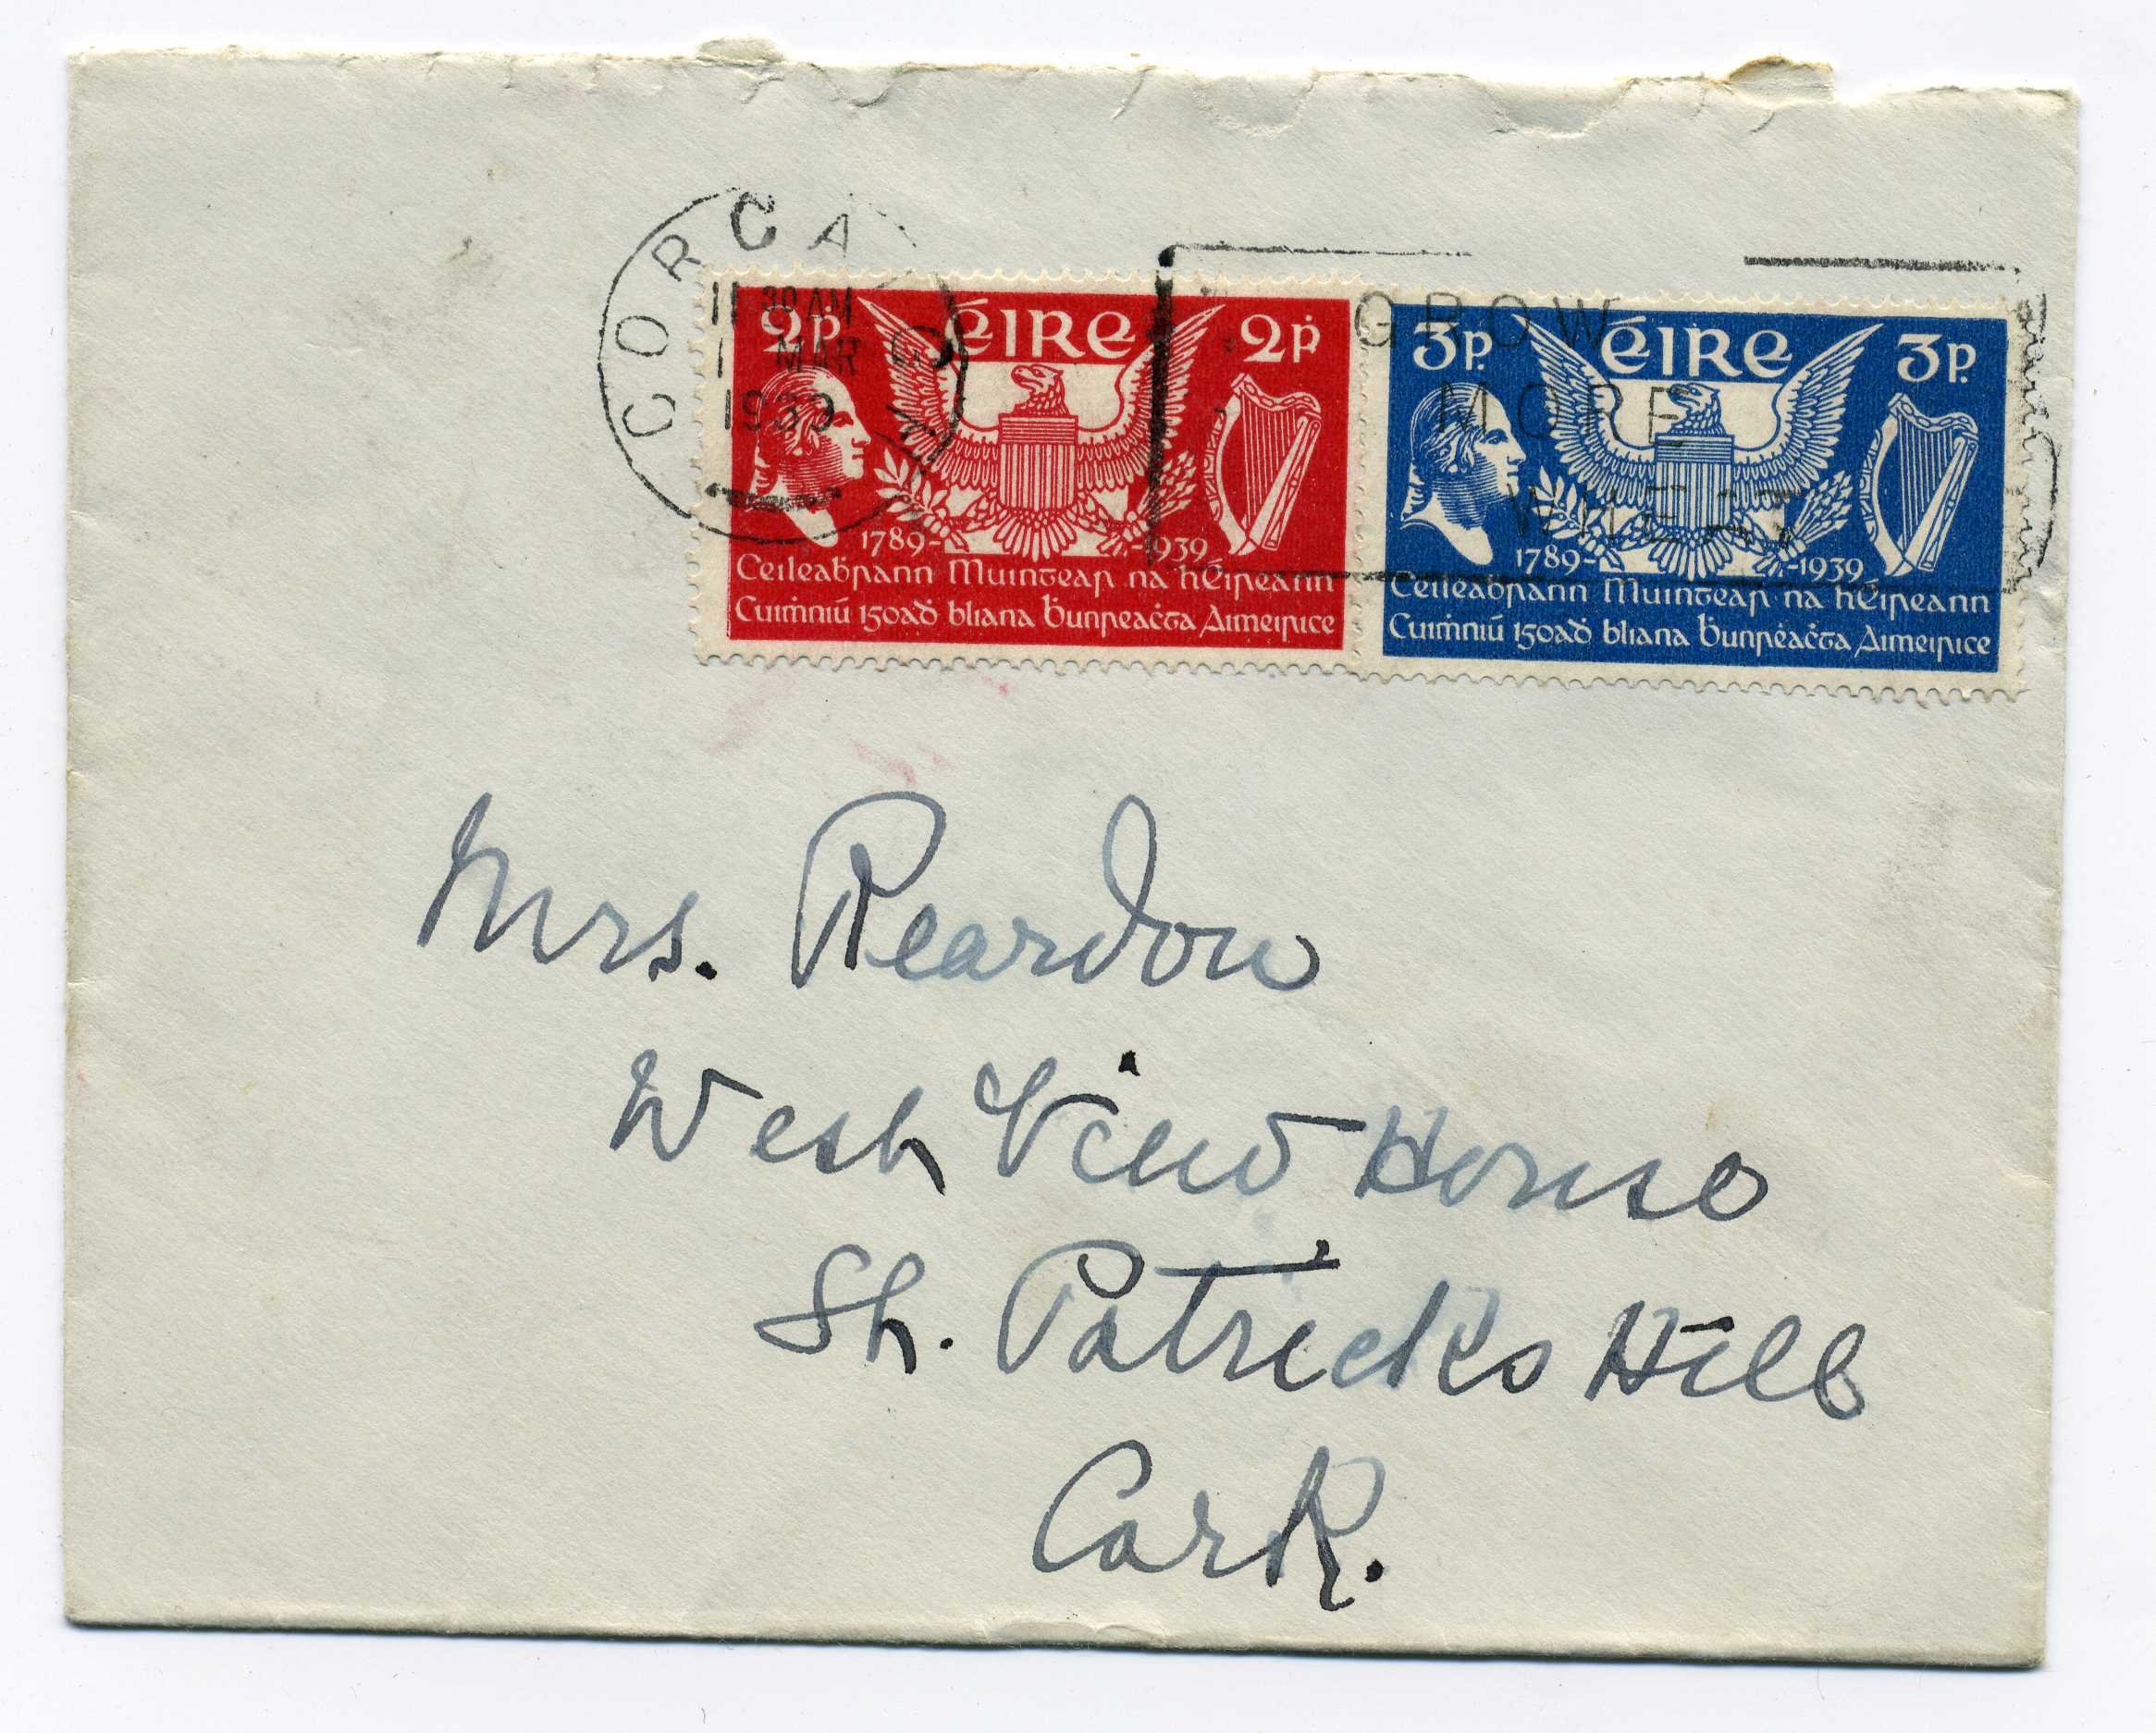 CORCAIGH
11 30 AM
1 MAR
1939
GROW
MORE
WHEAT
2p ÉIRE 2p
1789-1939
Ceileaḃrann Muintear na hÉireann
Cuiṁniú 150aḋ bliana Ḃunreaċta Aimeirice
3p ÉIRE 3p
1789-1939
Ceileaḃrann Muintear na hÉireann
Cuiṁniú 150aḋ bliana Ḃunreaċta Aimeirice
Mrs. Reardon
West View House
St. Patricks Hill
Cork.